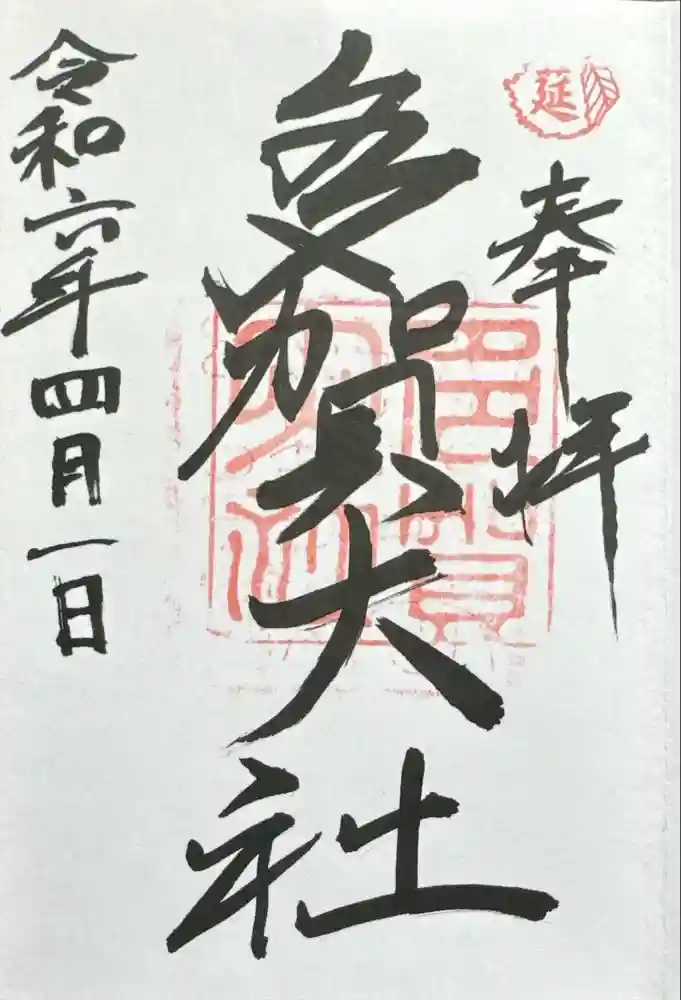 延
奉拝
多賀大社
令和六年四月一日